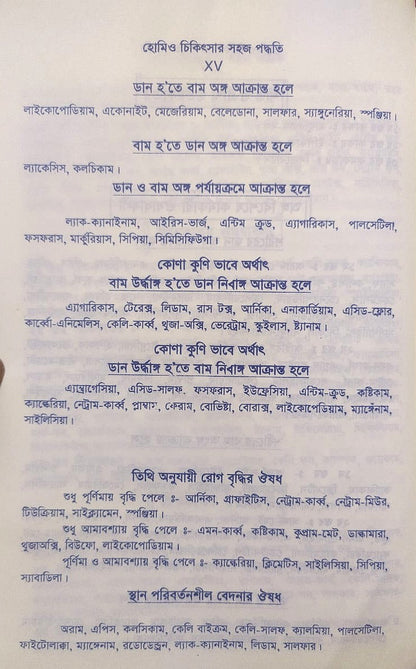 হোমিও চিকিৎসার সহজ পদ্ধতি
XV
ডান হ'তে বাম অঙ্গ আক্রান্ত হলে
লাইকোপোডিয়াম, একোনাইট, মেজেরিয়াম, বেলেডোনা, সালফার, স্যাঙ্গুনেরিয়া, স্পঞ্জিয়া।
বাম হ'তে ডান অঙ্গ আক্রান্ত হলে
ল্যাকেসিস, কলচিকাম।
ডান ও বাম অঙ্গ পর্যায়ক্রমে আক্রান্ত হলে
ল্যাক-ক্যানাইনাম, আইরিস-ভার্জ, এন্টিম ক্রুড, এ্যাগারিকাস, পালসেটিলা,
ফসফরাস, মার্কুরিয়াস, সিপিয়া, সিমিসিফিউগা।
কোণা কুণি ভাবে অর্থাৎ
বাম উর্দ্ধাঙ্গ হ'তে ডান নিবাঙ্গ আক্রান্ত হলে
এ্যাগারিকাস, টেরেক্স, লিডাম, রাস টক্স, আর্নিকা, এনাকার্ডিয়াম, এসিড-ফ্লোর,
কার্ব্বো-এনিমেলিস, কেলি-কার্ব্ব, থুজা-অক্সি, ভেরেট্রাম, স্কুইলাস, ষ্ট্যানাম।
কোণা কুণি ভাবে অর্থাৎ
ডান উর্দ্ধাঙ্গ হ'তে বাম নিবাঙ্গ আক্রান্ত হলে
এ্যাম্ব্রাগেসিয়া, এসিড-সালফ, ফসফরাস, ইউফ্রেসিয়া, এন্টিম-ক্রুড, কষ্টিকাম,
ক্যাল্কেরিয়া, নেট্রাম-কার্ব্ব, প্লাম্বাম, ফেরাম, বোভিষ্টা, বোরাক্স, লাইকোপেডিয়াম, ম্যাঙ্গেনাম,
সাইলিসিয়া।
তিথি অনুযায়ী রোগ বৃদ্ধির ঔষধ
শুধু পূর্ণিমায় বৃদ্ধি পেলে ঃ- আর্নিকা, গ্রাফাইটিস, নেট্রাম-কার্ব্ব, নেট্রাম-মিউর,
টিউক্রিয়াম, সাইক্ল্যামেন, স্পঞ্জিয়া।
শুধু আমাবশ্যায় বৃদ্ধি পেলে ঃ- এমন-কার্ব্ব, কষ্টিকাম, কুপ্রাম-মেট, ডাল্কামারা,
থুজাঅক্সি, বিউফো, লাইকোপোডিয়াম।
পূর্ণিমা ও আমাবশ্যায় বৃদ্ধি পেলে ঃ- ক্যাল্কেরিয়া, ক্লিমেটিস, সাইলিসিয়া, সিপিয়া,
স্যাবাডিলা।
স্থান পরিবর্তনশীল বেদনার ঔষধ
অরাম, এপিস, কলসিকাম, কেলি বাইক্রম, কেলি-সালফ, ক্যালমিয়া, পালসেটিলা,
ফাইটোলাক্কা, ম্যাঙ্গেনাম, রডোডেন্ড্রন, ল্যাক-ক্যানাইনাম, লিডাম, সালফার।